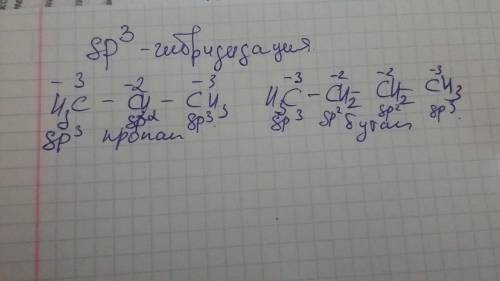 sp³ - гибридизация
-3 -2 -3 -3 -2 -2 -3
H₃C - CH₂ - CH₃ H₃C - CH₂ - CH₂ - CH₃
sp³ sp² sp³ sp³ sp² sp² sp³
пропан бутан